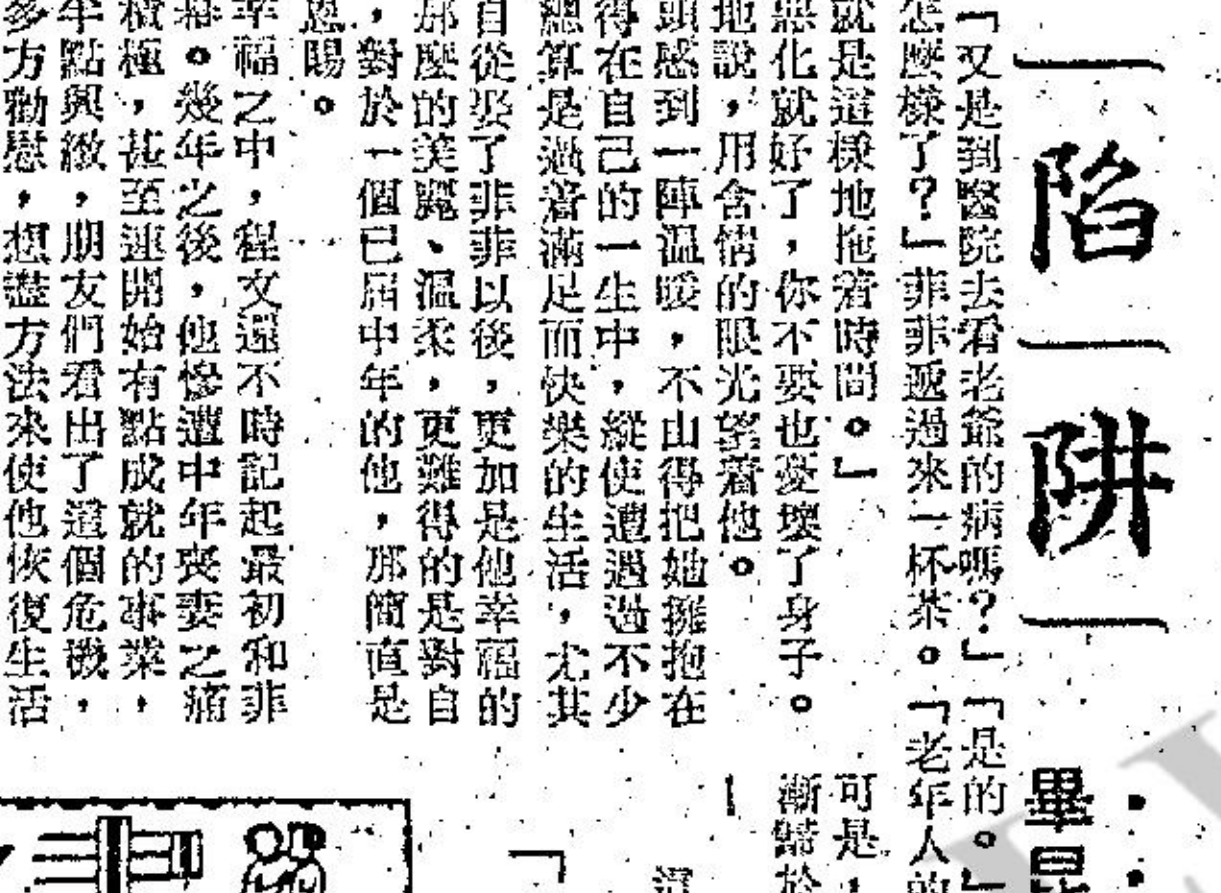 陷阱
畢
「又是到醫院去看老爺的病嗎?」「是的。」
怎麼樣了?」菲菲遞過來一杯茶。「老年人的
就是這樣地拖着時間。」
惡化就好了,你不要也憂壞了身子。
地說,用含情的眼光望着他。
頭感到一陣溫暖,不由得把她擁抱在
得在自己的一生中,縱使遭遇過不少
總算是過着滿足而快樂的生活,尤其
自從娶了菲菲以後,更加是他幸福的
那麼的美麗、溫柔,更難得的是對自
,對於一個已屆中年的他,那簡直是
恩賜。
幸福之中,程文還不時記起最初和菲
幕。幾年之後,他慘遭中年喪妻之痛
積極,甚至連開始有點成就的事業,
半點興緻,朋友們看出了這個危機,
多方勸慰,想盡方法來使他恢復生活
可是,
漸歸於